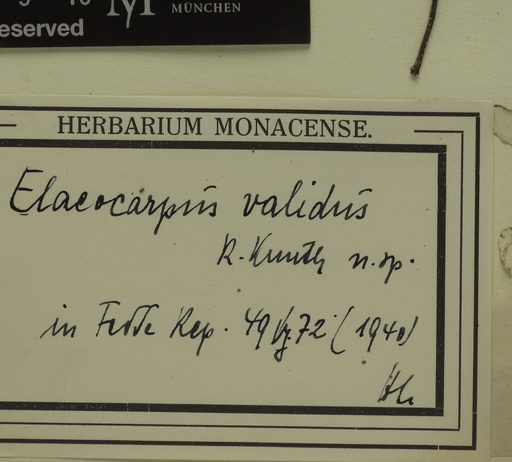 eserved
MÜNCHEN
HERBARIUM MONACENSE.
Elaeocarpus validus
R. Knuth n. sp.
in Fedde Rep. 49 72 (1940)